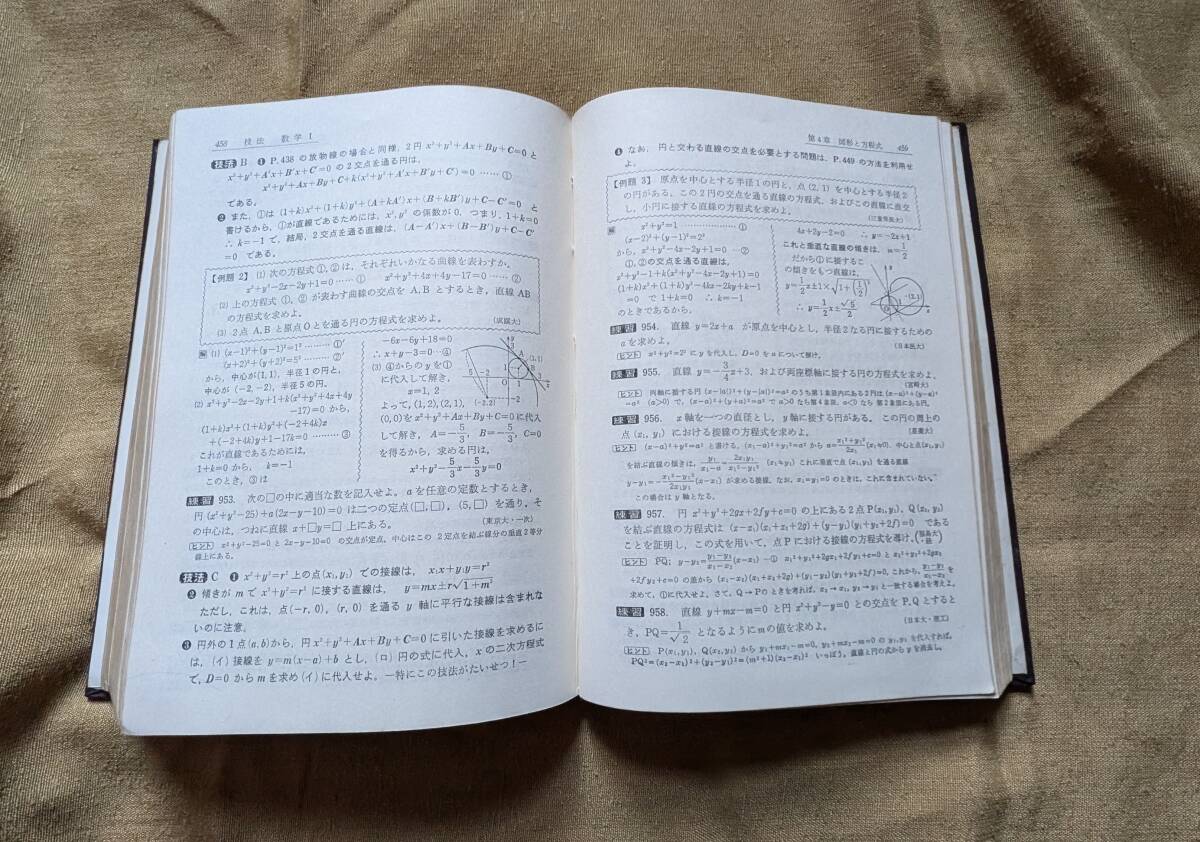 458 技法 数学 I
技法 B ❶ P.438 の放物線の場合と同様，2円 x²+y²+Ax+By+C=0 と
x²+y²+A'x+B'x+C'=0 の2交点を通る円は，
x²+y²+Ax+By+C+k(x²+y²+A'x+B'y+C')=0 …… ①
である。
❷ また，①は (1+k)x²+(1+k)y²+(A+kA')x+(B+kB')y+C−C'=0 と
書けるから，①が直線であるためには，x²,y² の係数が0，つまり，1+k=0
∴ k=−1 で，結局，2交点を通る直線は，(A−A')x+(B−B')y+C−C'
=0 である。
【例題 2】 (1) 次の方程式①，②は，それぞれいかなる曲線を表わすか。
x²+y²−2x−2y+1=0 …… ① x²+y²+4x+4y−17=0 …… ②
(2) 上の方程式 ①，② が表わす曲線の交点を A, B とするとき，直線 AB
の方程式を求めよ。
(3) 2点 A, B と原点 O とを通る円の方程式を求めよ。 (成蹊大)
解 (1) (x−1)²+(y−1)²=1² ……… ①'
(x+2)²+(y+2)²=5² ……… ②'
から，中心が(1,1)，半径1の円と，
中心が (−2,−2)，半径5の円。
(2) x²+y²−2x−2y+1+k(x²+y²+4x+4y
−17)=0 から，
(1+k)x²+(1+k)y²+(−2+4k)x
+(−2+4k)y+1−17k=0 ……… ③
これが直線であるためには，
1+k=0 から， k=−1
このとき，③は
−6x−6y+18=0
∴ x+y−3=0 … ④
(3) ④からのyを①
に代入して解き，
x=1, 2
よって，(1,2), (2,1),
(0,0)をx²+y²+Ax+By+C=0に代入
して解き，A=−5/3, B=−5/3, C=0
を得るから，求める円は，
x²+y²−5/3x−5/3y=0
練習 953. 次の□の中に適当な数を記入せよ。aを任意の定数とするとき，
円(x²+y²−25)+a(2x−y−10)=0 は二つの定点(□,□), (5,□) を通り，そ
の中心は，つねに直線 x+□y=□ 上にある。 (東京大・一次)
ヒント x²+y²−25=0 と 2x−y−10=0 の交点が定点。中心はこの 2定点を結ぶ線分の垂直2等分
線上にある。
技法 C ❶ x²+y²=r² 上の点(x₁,y₁) での接線は， x₁x+y₁y=r²
❷ 傾きが m で x²+y²=r² に接する直線は， y=mx±r√1+m²
ただし，これは，点(−r, 0)，(r, 0) を通る y 軸に平行な接線は含まれな
いのに注意。
❸ 円外の1点(a,b)から，円 x²+y²+Ax+By+C=0に引いた接線を求めるに
は，(イ) 接線を y=m(x−a)+b とし，(ロ)円の式に代入，x の二次方程式
で，D=0 から m を求め(イ)に代入せよ。―特にこの技法がたいせつ！―
第4章 図形と方程式 459
❹ なお，円と交わる直線の交点を必要とする問題は，P.449 の方法を利用せ
よ。
【例題 3】 原点を中心とする半径1の円と，点(2,1) を中心とする半径2
の円がある。この2円の交点を通る直線の方程式，およびこの直線に直交
し，小円に接する直線の方程式を求めよ。
解 x²+y²=1 ……………… ①
(x−2)²+(y−1)²=2²
から，x²+y²−4x−2y+1=0 …②
①,②の交点を通る直線は，
x²+y²−1+k(x²+y²−4x−2y+1)=0
(1+k)x²+(1+k)y²−4kx−2ky+k−1
=0 で 1+k=0 ∴ k=−1
のときであるから，
4x+2y−2=0 ∴ y=−2x+1
これと垂直な直線の傾きは，m=1/2
だから①に接するこ
の傾きをもつ直線は，
y=1/2x±1×√1+(1/2)²
∴ y=1/2x±√5/2
練習 954. 直線 y=2x+a が原点を中心とし，半径2なる円に接するための
a を求めよ。 (日本医大)
ヒント x²+y²=2² に y を代入し，D=0 を a について解け。
練習 955. 直線 y=−3/4x+3，および両座標軸に接する円の方程式を求めよ。
(宮崎大)
練習 956. x 軸を一つの直径とし，y 軸に接する円がある。この円の周上の
点 (x₁, y₁) における接線の方程式を求めよ。
ヒント (x−a)²+y²=a² と書ける。(x₁−a)²+y₁²=a² から a=x₁²+y₁²/2x₁ (x₁≠0)，中心と点(x₁,y₁)
を結ぶ直線の傾きは，y₁/x₁−a=2x₁y₁/x₁²−y₁² (x₁≠y₁) これに垂直で点(x₁,y₁) を通る直線
y−y₁=−x₁²−y₁²/2x₁y₁(x−x₁) が求める接線。なお，x₁=y₁=0 のときは，これに含まれていない。
この場合は y 軸となる。
練習 957. 円 x²+y²+2gx+2fy+c=0 の上にある2点 P(x₁,y₁), Q(x₂,y₂)
を結ぶ直線の方程式は (x−x₁)(x₁+x₂+2g)+(y−y₁)(y₁+y₂+2f)=0 である
ことを証明し，この式を用いて，点Pにおける接線の方程式を導け。
ヒント PQ: y−y₁=y₁−y₂/x₁−x₂(x−x₁) …① x₁²+y₁²+2gx₁+2fy₁+c=0 と x₂²+y₂²+2gx₂
+2fy₂+c=0 の差から (x₁−x₂)(x₁+x₂+2g)+(y₁−y₂)(y₁+y₂+2f)=0，これから，y₁−y₂/x₁−x₂ を
求めて，①に代入せよ。さて，Q→P のときを考えれば，x₂→x₁, y₂→y₁ と一致する場合を考えよ。
練習 958. 直線 y+mx−m=0 と円 x²+y²−y=0 との交点を P,Q とすると
き，PQ=1/√2 となるように m の値を求めよ。 (日本大・理工)
ヒント P(x₁,y₁), Q(x₂,y₂) から y₁+mx₁−m=0, y₂+mx₂−m=0 の y₁,y₂ を代入すれば，
PQ²=(x₂−x₁)²+(y₂−y₁)²=(m²+1)(x₂−x₁)² いっぽう，直線と円の式から y を消去し，